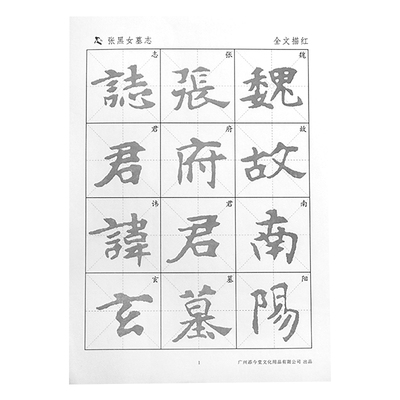 张黑女墓志
全文描红
魏故南陽
魏故南阳
張府君墓
张府君墓
誌君諱玄
志君讳玄
1
广州 文化用品有限公司 出品